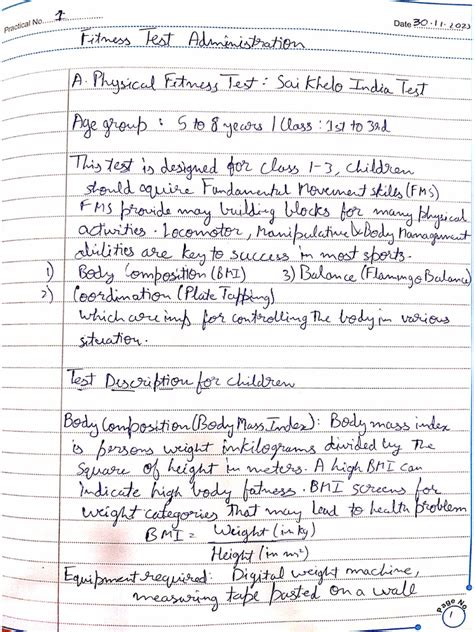 Practical No. 1
Date 30.11.2023
Fitness Test Administration
A. Physical Fitness Test : Sai Khelo India Test
Age group : 5 to 8 years / Class : 1st to 3rd
This test is designed for class 1-3, Children
should aquire Fundamental Movement skills (FMS)
FMS provide may building blocks for many physical
activities. Locomotor, Manipulative & Body Management
abilities are key to success in most sports.
1) Body Composition (BMI) 3) Balance (Flamingo Balance)
2) Coordination (Plate Tapping)
which are imp for controlling the body in various
situation.
Test Description for children
Body Composition (Body Mass Index) : Body mass index
is persons weight in kilograms divided by the
square of height in meters. A high BMI can
indicate high body fatness. BMI screens for
weight categories that may lead to health problem
BMI = Weight (in kg)
Height (in m²)
Equipment required: Digital weight machine,
measuring tape pasted on a wall
Page No. 1